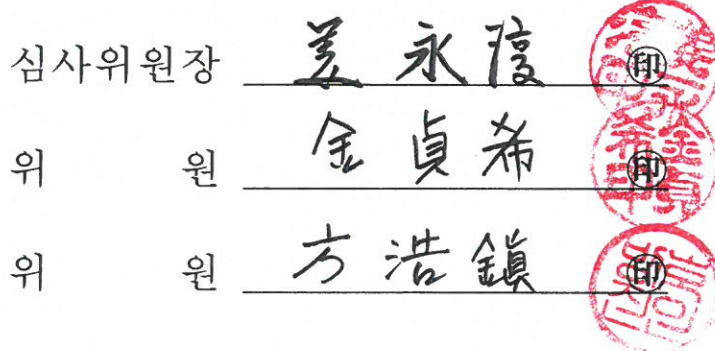 심사위원장 姜永淳 印
위 원 金貞希 印
위 원 方浩鎭 印